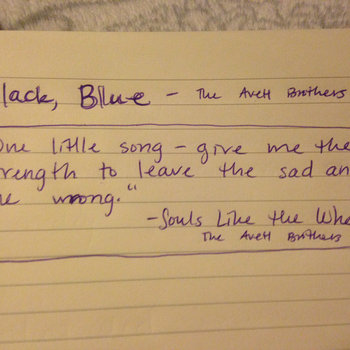 lack, Blue - The Avett Brothers
One little song - give me the
trength to leave the sad an
he wrong."
-Souls Like the Whe
The Avett Brothers